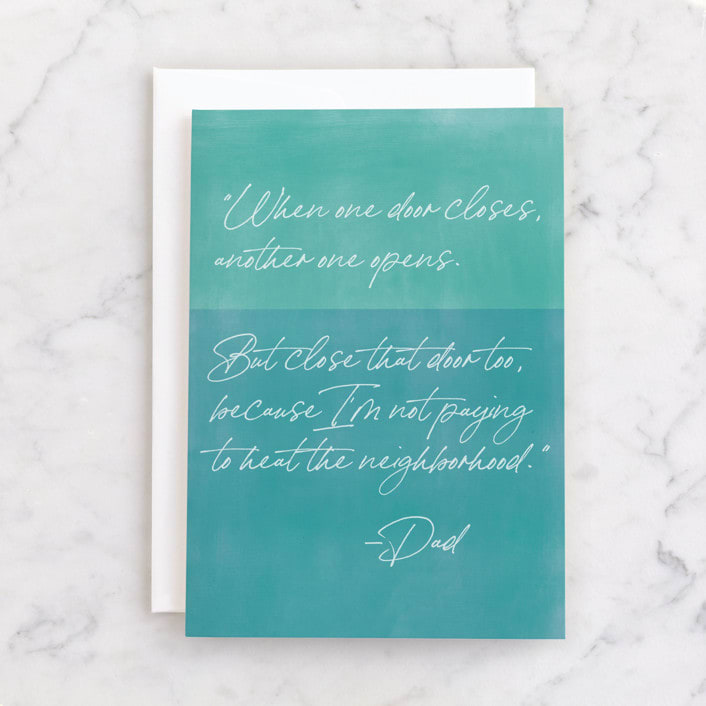 "When one door closes,
another one opens.
But close that door too,
because I'm not paying
to heat the neighborhood."
-Dad